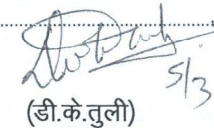 5/3
(डी.के.तुली)